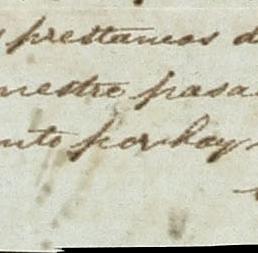 s prestamos d
mestre pasa
nto por hoy